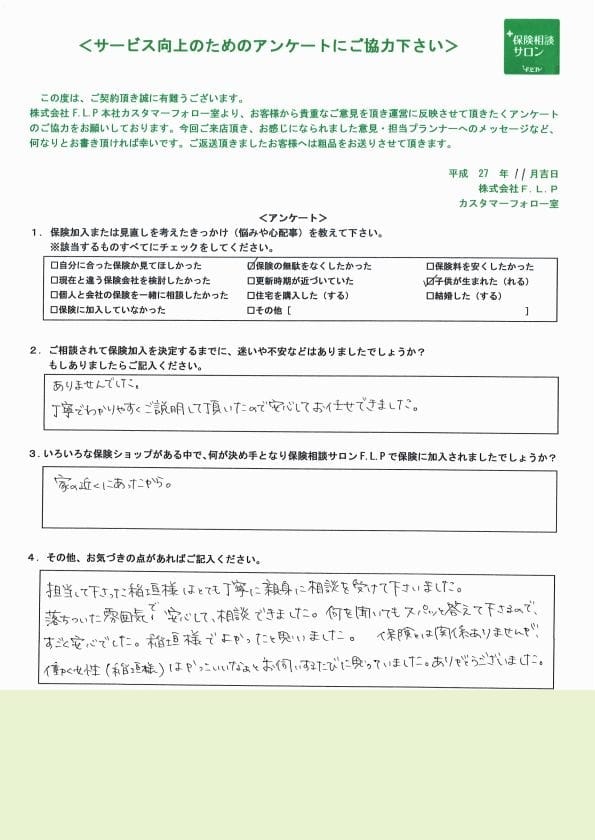 <サービス向上のためのアンケートにご協力下さい>
保険相談
サロン
この度は、ご契約頂き誠に有難うございます。
株式会社F.L.P本社カスタマーフォロー室より、お客様から貴重なご意見を頂き運営に反映させて頂きたくアンケート
のご協力をお願いしております。今回ご来店頂き、お感じになられました意見・担当プランナーへのメッセージなど、
何なりとお書き頂ければ幸いです。ご返送頂きましたお客様へは粗品をお送りさせて頂きます。
平成 27 年 11月吉日
株式会社F.L.P
カスタマーフォロー室
<アンケート>
1．保険加入または見直しを考えたきっかけ（悩みや心配事）を教えて下さい。
※該当するものすべてにチェックをしてください。
□自分に合った保険か見てほしかった ☑保険の無駄をなくしたかった □保険料を安くしたかった
□現在と違う保険会社を検討したかった □更新時期が近づいていた ☑子供が生まれた（れる）
□個人と会社の保険を一緒に相談したかった □住宅を購入した（する） □結婚した（する）
□保険に加入していなかった □その他［ ］
2．ご相談されて保険加入を決定するまでに、迷いや不安などはありましたでしょうか？
もしありましたらご記入ください。
ありませんでした。
丁寧でわかりやすくご説明して頂いたので安心してお任せできました。
3．いろいろな保険ショップがある中で、何が決め手となり保険相談サロンF.L.Pで保険に加入されましたでしょうか？
家の近くにあったから。
4．その他、お気づきの点があればご記入ください。
担当して下さった稲垣様はとても丁寧に親身に相談を受けて下さいました。
落ちついた雰囲気で安心して、相談できました。何を聞いてもスパッと答えて下さるので、
すごく安心でした。稲垣様でよかったと思いました。 保険とは関係ありませんが、
働く女性（稲垣様）はかっこいいなぁとお伺いするたびに思っていました。ありがとうございました。